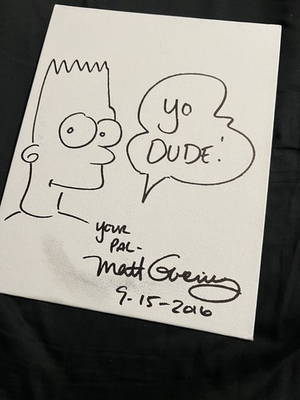 YO
DUDE!
YOUR
PAL-
Matt Groening
9-15-2016